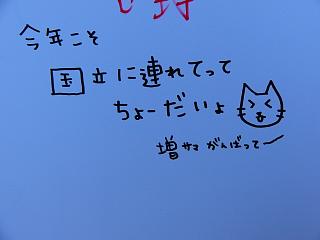 今年こそ
国立に連れてって
ちょーだいよ
増サマ がんばってー